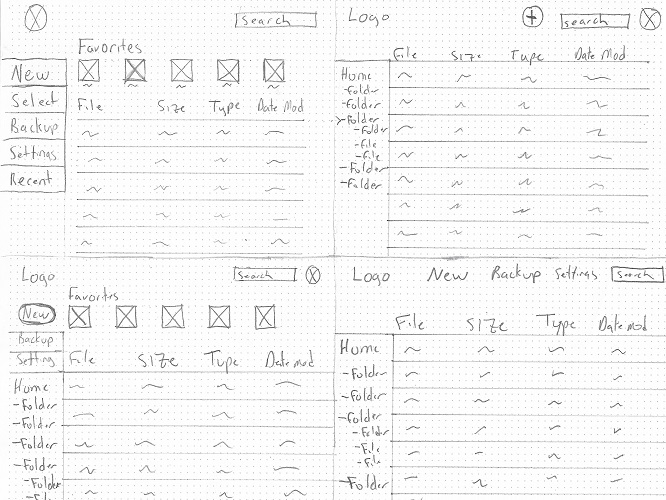 search
Favorites
New
Select
Backup
Settings
Recent
File Size Type Date Mod
Logo
search
File Size Type Date Mod
Home
-folder
-folder
>-Folder
-Folder
-file
-file
-Folder
-Folder
Logo
search
Favorites
New
Backup
Setting
File Size Type Date mod
Home
-Folder
-Folder
-Folder
-Folder
-Folder
-File
Logo New Backup Settings search
File Size Type Date mod
Home
-Folder
-Folder
-Folder
-Folder
-File
-File
-Folder